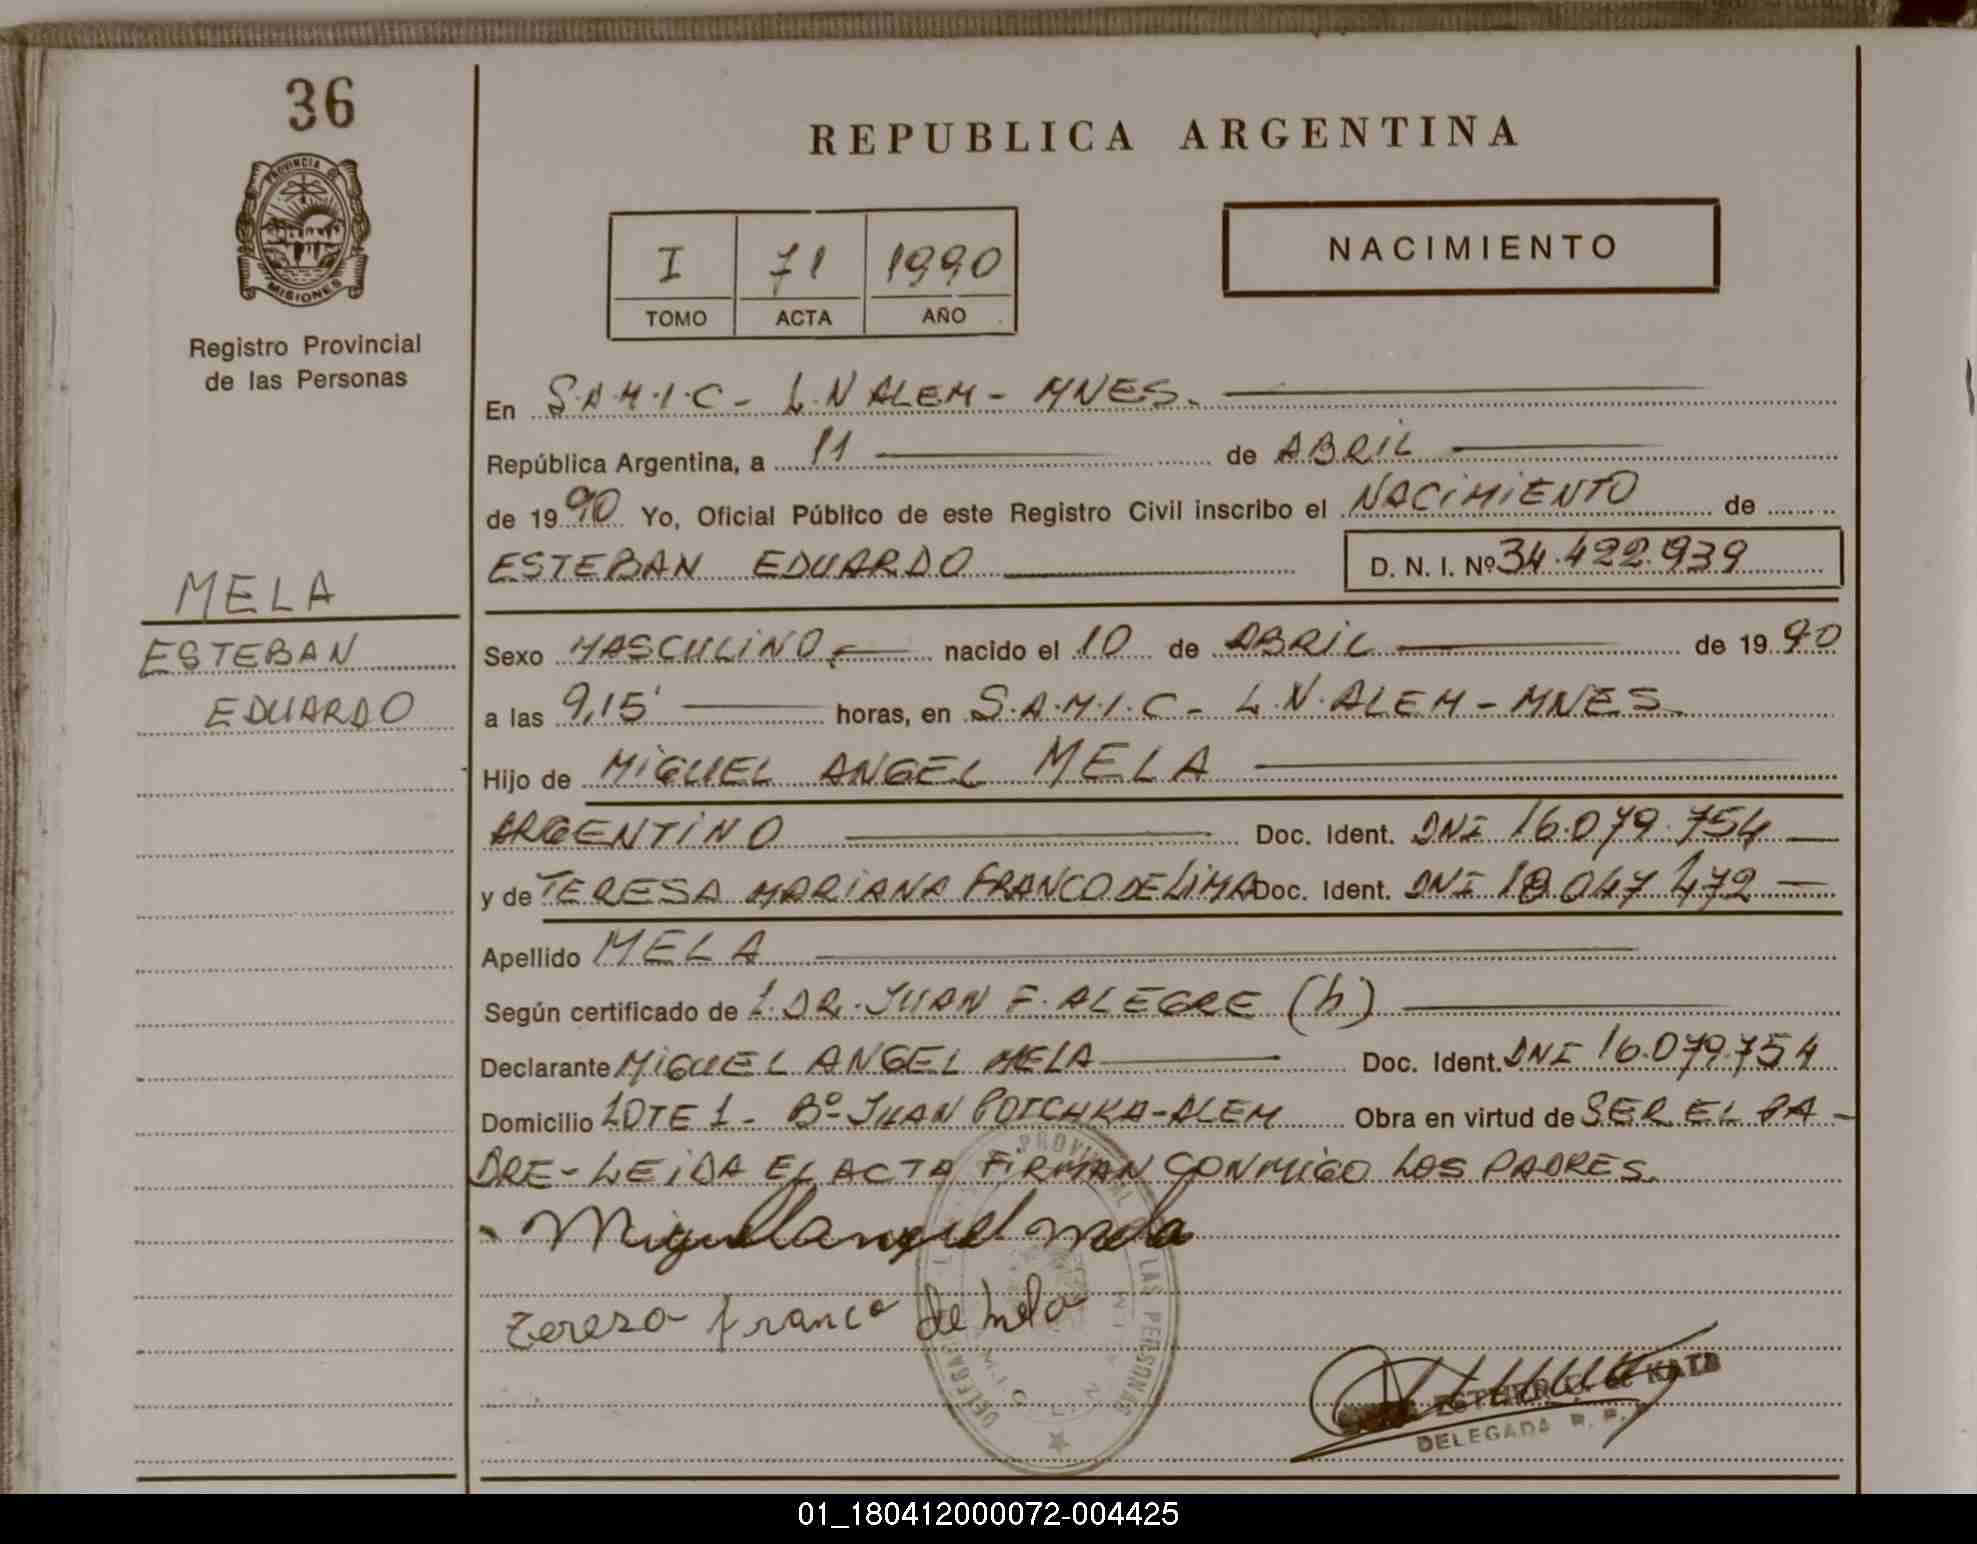 36
PROVINCIA DE
MISIONES
Registro Provincial
de las Personas
MELA
ESTEBAN
EDUARDO
REPUBLICA ARGENTINA
I 71 1990
TOMO ACTA AÑO
NACIMIENTO
En S.A.M.I.C - L.N ALEM - MNES.
República Argentina, a 11 de ABRIL
de 1990 Yo, Oficial Público de este Registro Civil inscribo el NACIMIENTO de
ESTEBAN EDUARDO D. N. I. Nº 34.422.939
Sexo MASCULINO nacido el 10 de ABRIL de 1990
a las 9,15' horas, en S.A.M.I.C - L.N. ALEM - MNES.
Hijo de MIGUEL ANGEL MELA
ARGENTINO Doc. Ident. DNI 16.079.754
y de TERESA MARIANA FRANCO DE LIMA Doc. Ident. DNI 18.047.472
Apellido MELA
Según certificado de 1. DR. JUAN F. ALEGRE (h)
Declarante MIGUEL ANGEL MELA Doc. Ident. DNI 16.079.754
Domicilio LOTE 1 - Bº JUAN POTCHKA - ALEM Obra en virtud de SER EL PA -
DRE - LEIDA EL ACTA FIRMAN CONMIGO LOS PADRES.
Miguel angel mela
tereza franco de mela
PROVINCIAL LAS PERSONAS
ESTHER KATB
DELEGADA R. P.
01_180412000072-004425